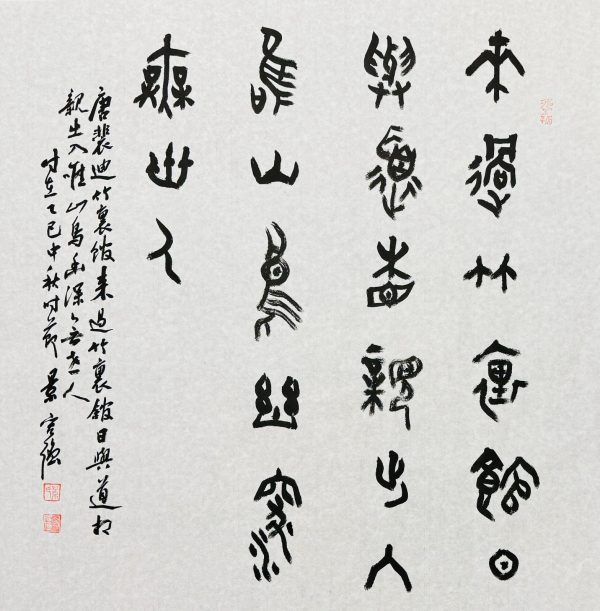 來過竹裏館日
與道相親出入
唯山鳥幽深
無世人
唐裴迪竹裏館來過竹裏館日與道相
親出入唯山鳥幽深無世人
时在乙巳中秋时节 景